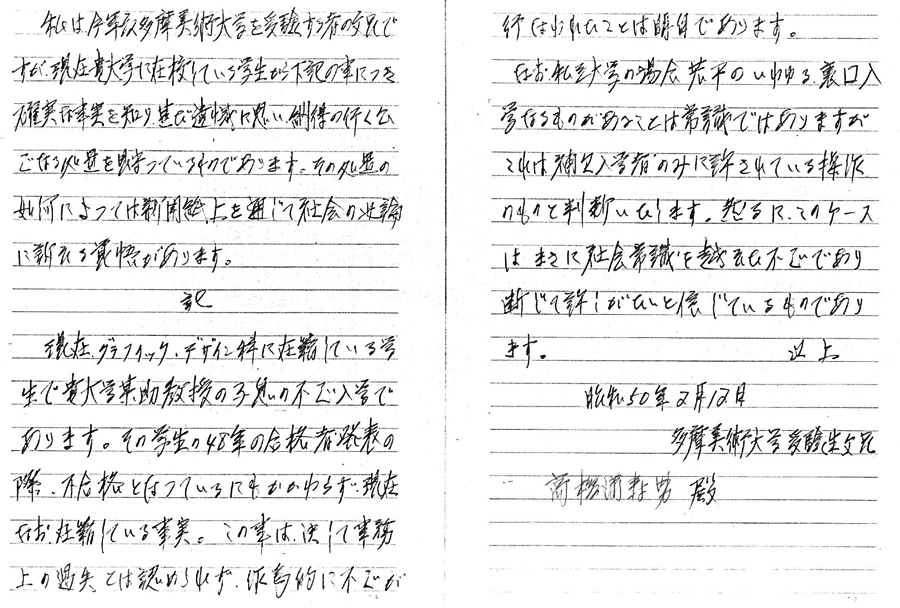 私は今年度多摩美術大学を受験する者の父兄で
すが、現在貴大学に在校している学生から下記の事につき
確実な事実を知り甚だ遺憾に思い、納得の行く公
正なる処置を待っているものであります。その処置の
如何によっては新聞紙上を通じて社会の世論
に訴える覚悟があります。
記
現在、グラフィック・デザイン科に在籍している学
生で貴大学某助教授の子息の不正入学で
あります。その学生の48年の合格者発表の
際、不合格となっているにもかかわらず、現在
なお在籍している事実。この事は、決して事務
上の過失とは認められず、作為的に不正が
行なわれたことは明白であります。
なお私立大学の場合若干のいわゆる裏口入
学なるものがあることは常識ではありますが
これは補欠入学者のみに許されている操作
のものと判断いたします。然るに、このケース
はまさに社会常識を越えた不正であり
断じて許しがたいと信じているものであり
ます。 以上
昭和50年2月12日
多摩美術大学受験生父兄
殿